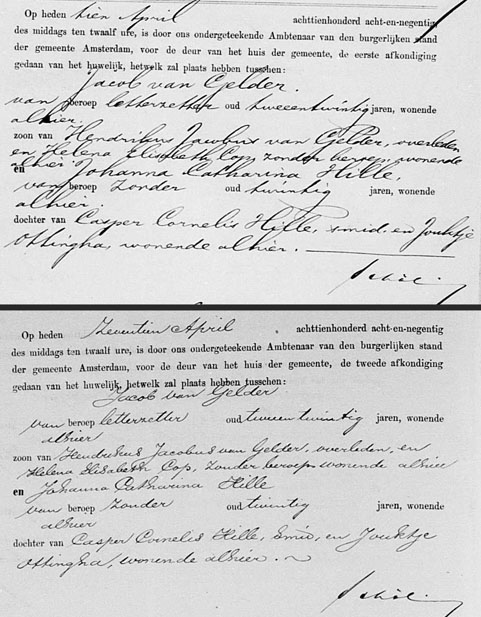 Op heden tien April achttienhonderd acht-en-negentig
des middags ten twaalf ure, is door ons ondergeteekende Ambtenaar van den burgerlijken stand
der gemeente Amsterdam, voor de deur van het huis der gemeente, de eerste afkondiging
gedaan van het huwelijk, hetwelk zal plaats hebben tusschen:
Jacob van Gelder.
van beroep letterzetter oud tweeentwintig jaren, wonende
alhier.
zoon van Hendrikus Jacobus van Gelder, overleden
en Helena Elisabeth Cop, zonder beroep, wonende
alhier.
en Johanna Catharina Hille,
van beroep zonder oud twintig jaren, wonende
alhier.
dochter van Casper Cornelis Hille, smid en Jouktje
Ottingha, wonende alhier.
Op heden Zeventien April achttienhonderd acht-en-negentig
des middags ten twaalf ure, is door ons ondergeteekende Ambtenaar van den burgerlijken stand
der gemeente Amsterdam, voor de deur van het huis der gemeente, de tweede afkondiging
gedaan van het huwelijk, hetwelk zal plaats hebben tusschen:
Jacob van Gelder
van beroep letterzetter oud tweeentwintig jaren, wonende
alhier
zoon van Hendrikus Jacobus van Gelder, overleden, en
Helena Elisabeth Cop, zonder beroep wonende alhier
en Johanna Catharina Hille
van beroep zonder oud twintig jaren, wonende
alhier
dochter van Casper Cornelis Hille, smid, en Jouktje
Ottingha, wonende alhier.